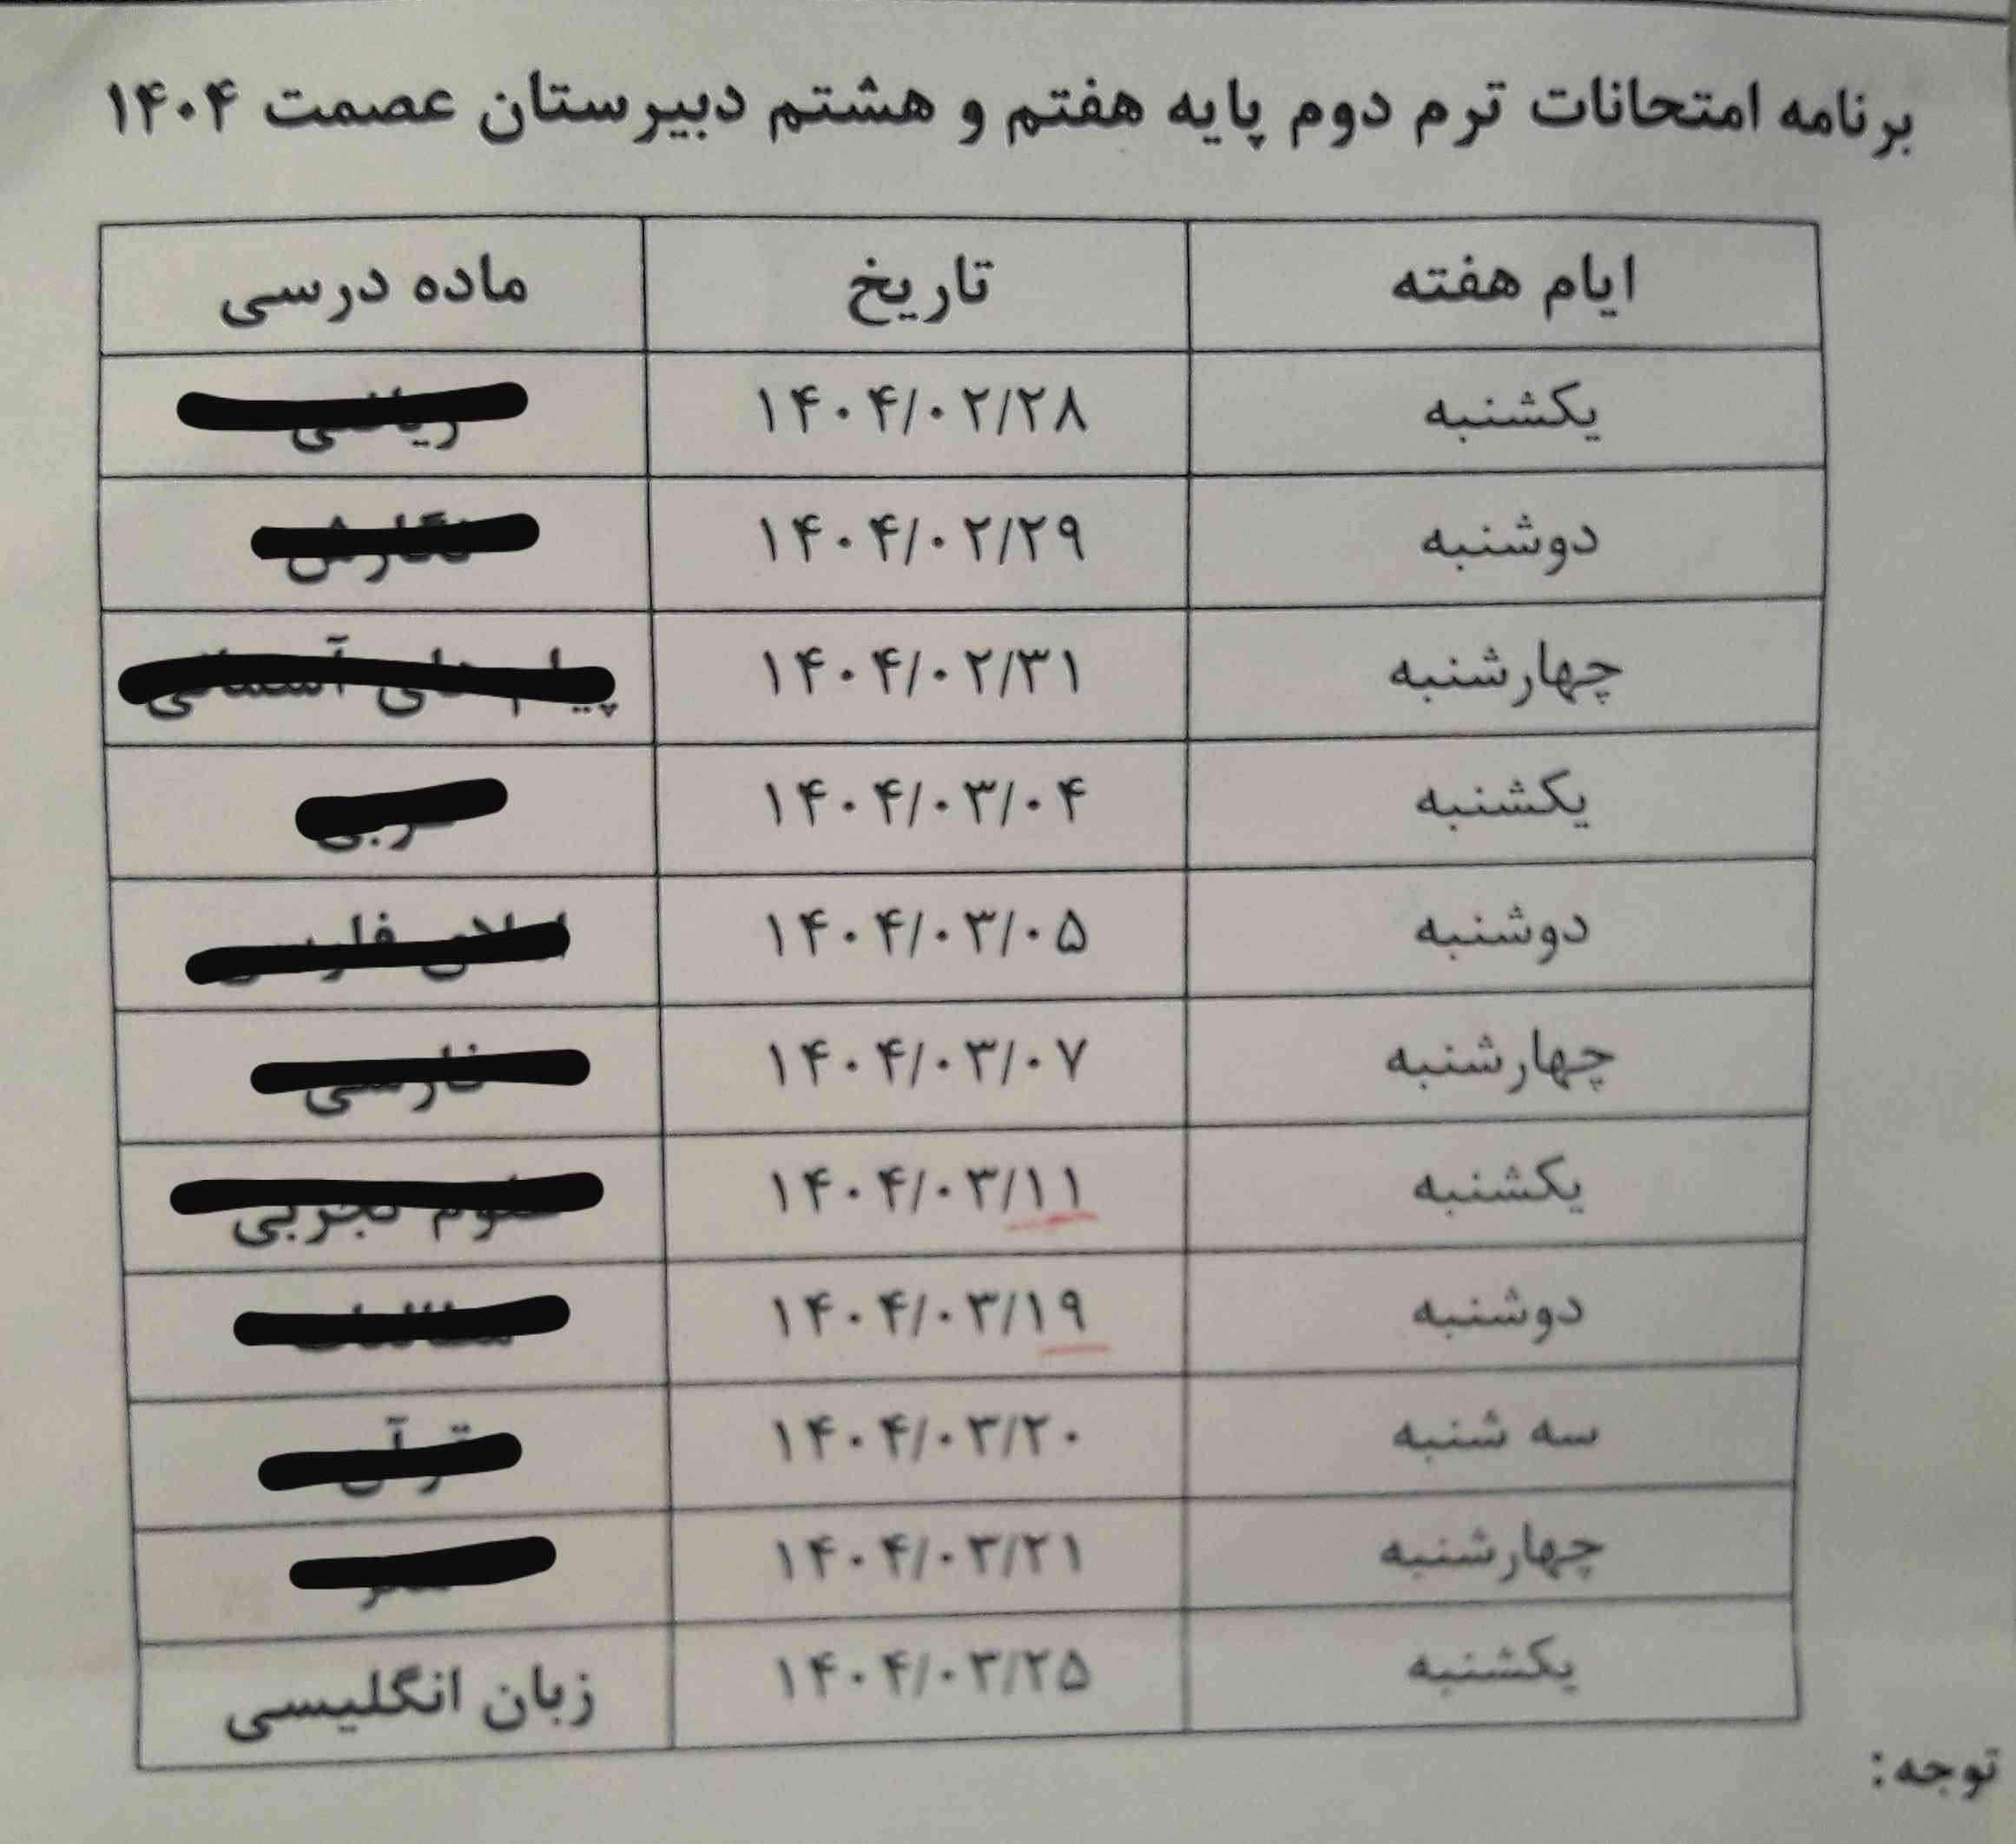 برنامه امتحانات ترم دوم پایه هفتم و هشتم دبیرستان عصمت ۱۴۰۴
ایام هفته تاریخ ماده درسی
یکشنبه ۱۴۰۴/۰۲/۲۸ ریاضی
دوشنبه ۱۴۰۴/۰۲/۲۹ نگارش
چهارشنبه ۱۴۰۴/۰۲/۳۱ پیام های آسمانی
یکشنبه ۱۴۰۴/۰۳/۰۴
دوشنبه ۱۴۰۴/۰۳/۰۵ املای فارسی
چهارشنبه ۱۴۰۴/۰۳/۰۷ فارسی
یکشنبه ۱۴۰۴/۰۳/۱۱ علوم تجربی
دوشنبه ۱۴۰۴/۰۳/۱۹
سه شنبه ۱۴۰۴/۰۳/۲۰ قرآن
چهارشنبه ۱۴۰۴/۰۳/۲۱
یکشنبه ۱۴۰۴/۰۳/۲۵ زبان انگلیسی
توجه: